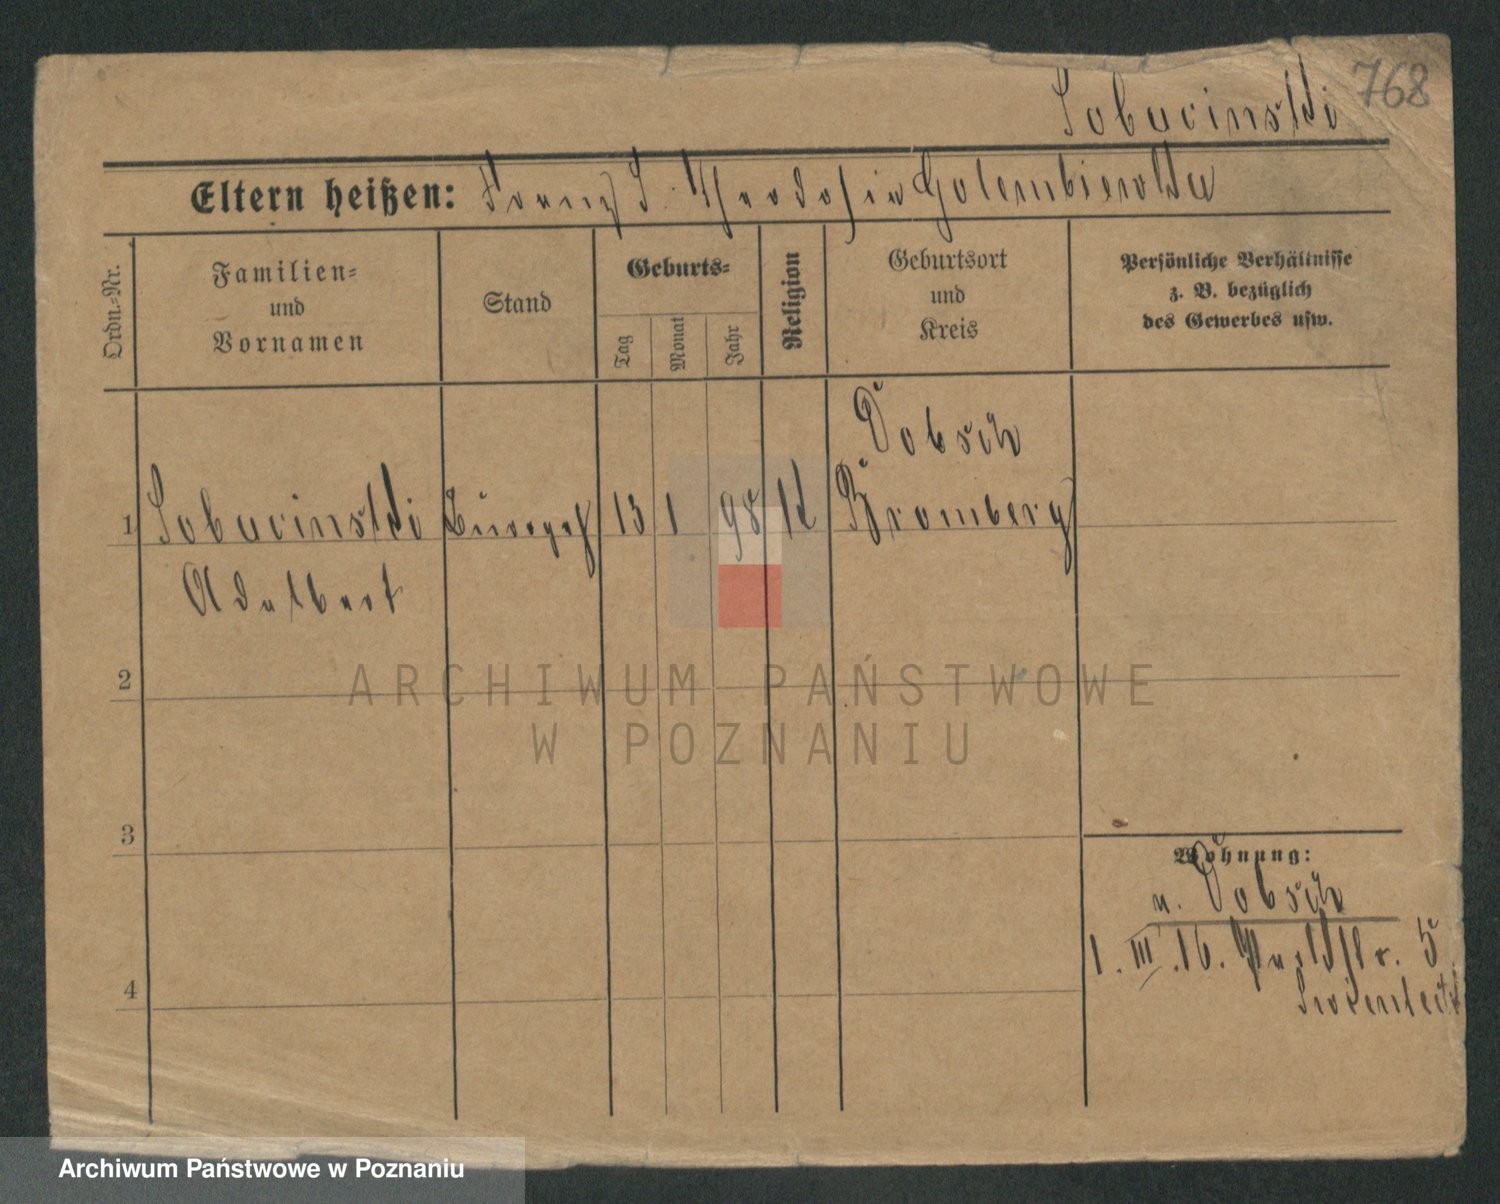 768
Sobucinski
Eltern heißen: Franz S. Theodosia Golembiewska
Ordn.-Nr.
Familien-
und
Vornamen
Stand
Geburts-
Tag
Monat
Jahr
Religion
Geburtsort
und
Kreis
Persönliche Verhältnisse
z. B. bezüglich
des Gewerbes usw.
Dobsch
1 Sobucinski 13 1 98 Bromberg
Adalbert
2
ARCHIWUM PAŃSTWOWE
W POZNANIU
3
Wohnung:
n. Dobsch
1. III. 16. 5
4
Archiwum Państwowe w Poznaniu